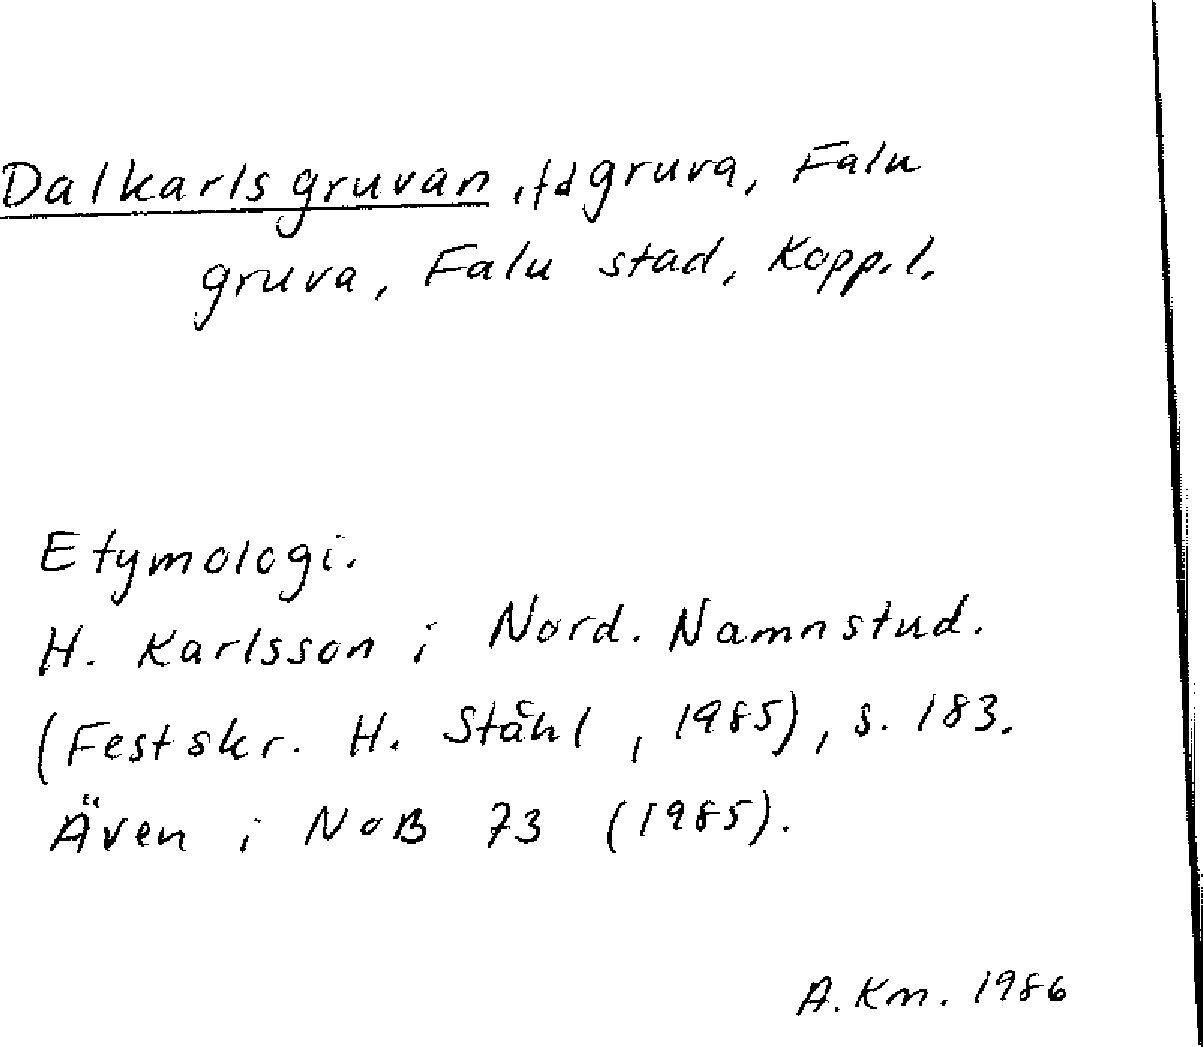 Dalkarlsgruvan, fd gruva, Falu
gruva, Falu stad, Kopp.l.
Etymologi.
H. Karlsson i Nord. Namnstud.
(Festskr. H. Ståhl, 1985), s. 183.
Även i NoB 73 (1985).
A. Km. 1986